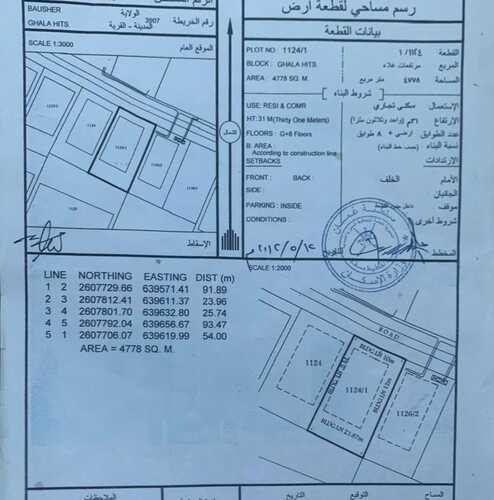 رسم مساحي لقطعة أرض
BAUSHER الولاية
GHALA HITS 3907 المدينة - القرية رقم الخريطة
SCALE 1:3000 الموقع العام
بيانات القطعة
PLOT NO : 1124/1 ١١٢٤/١ القطعة
BLOCK : GHALA HITS مرتفعات غلاء المربع
AREA : 4778 SQ. M. ٤٧٧٨ متر مربع المساحة
شروط البناء
USE: RESI & COMR سكني تجاري الإستعمال
HT: 31 M(Thirty One Meters) ٣١م (واحد وثلاثون مترا) الإرتفاع
FLOORS : G+8 Floors أرضي + ٨ طوابق عدد الطوابق
B. AREA : According to construction line حسب خط البناء نسبة البناء
SETBACKS الإرتدادات
FRONT : BACK : الخلف الأمام
SIDE : الجانبان
PARKING : INSIDE موقف
CONDITIONS : شروط أخرى
المخطط
الشمال
الإسقاط
SCALE 1:2000
LINE NORTHING EASTING DIST (m)
1 2 2607729.66 639571.41 91.89
2 3 2607812.41 639611.37 23.96
3 4 2607801.70 639632.80 25.74
4 5 2607792.04 639656.67 93.47
5 1 2607706.07 639619.99 54.00
AREA = 4778 SQ. M.
ROAD
1124
1124/1
1126/2
المساح التوقيع التاريخ الملاحظات